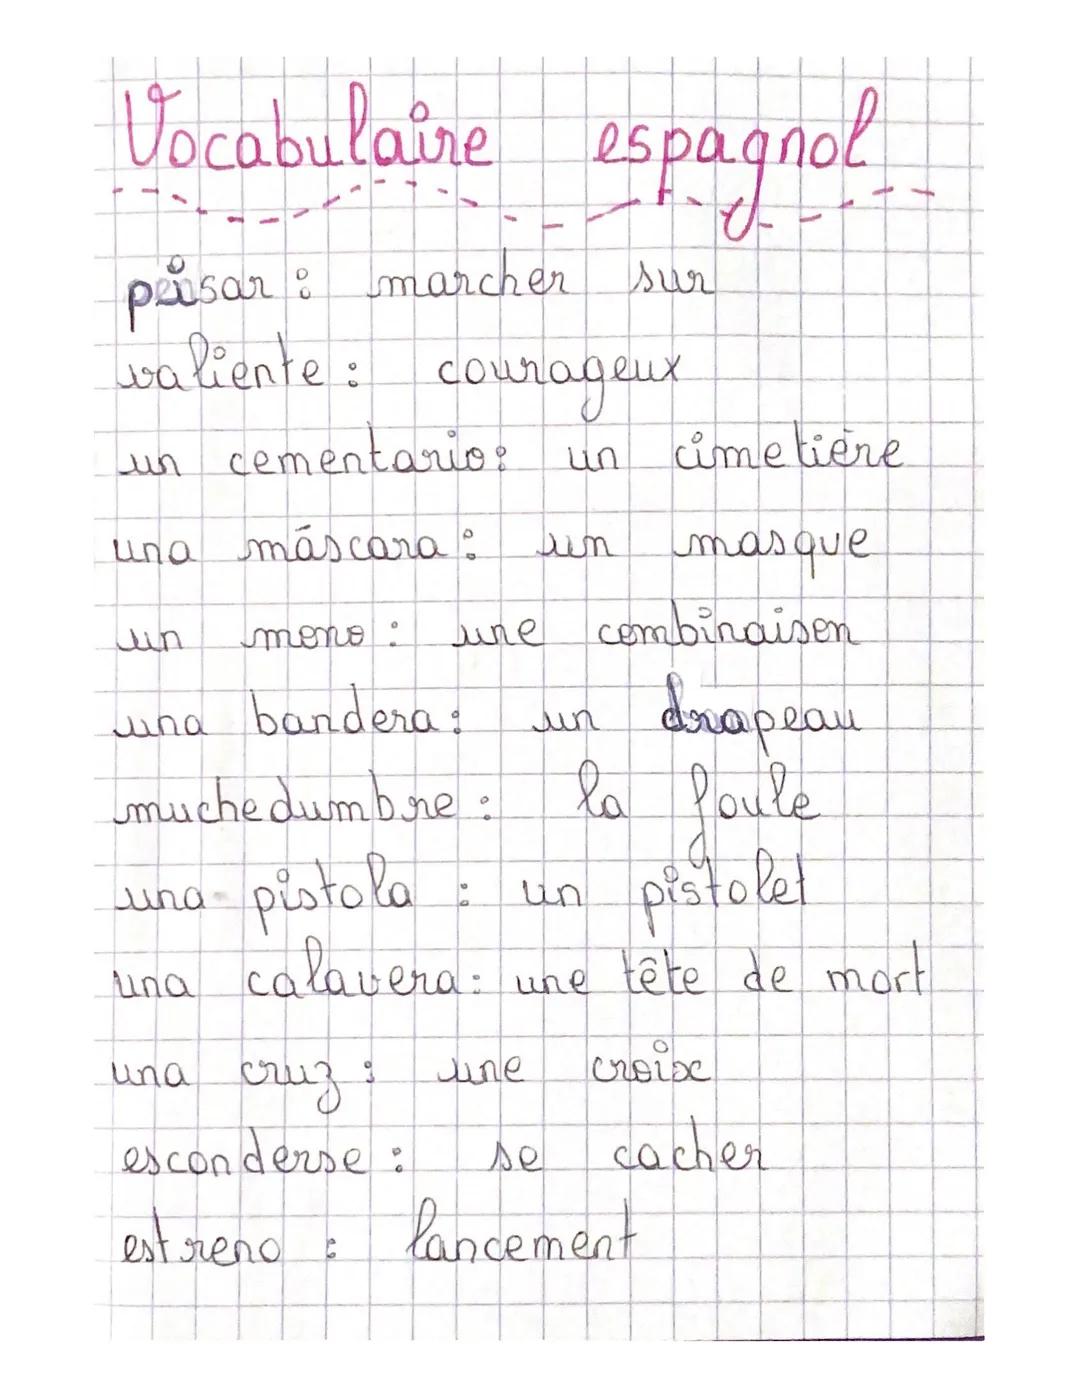 Vocabulaire espagnol
pisar : marcher sur
valiente : courageux
un cementario : un cimetière
una máscara : un masque
un mono : une combinaison
una bandera : un drapeau
muchedumbre : la foule
una pistola : un pistolet
una calavera : une tête de mort
una cruz : une croix
esconderse : se cacher
estreno : lancement